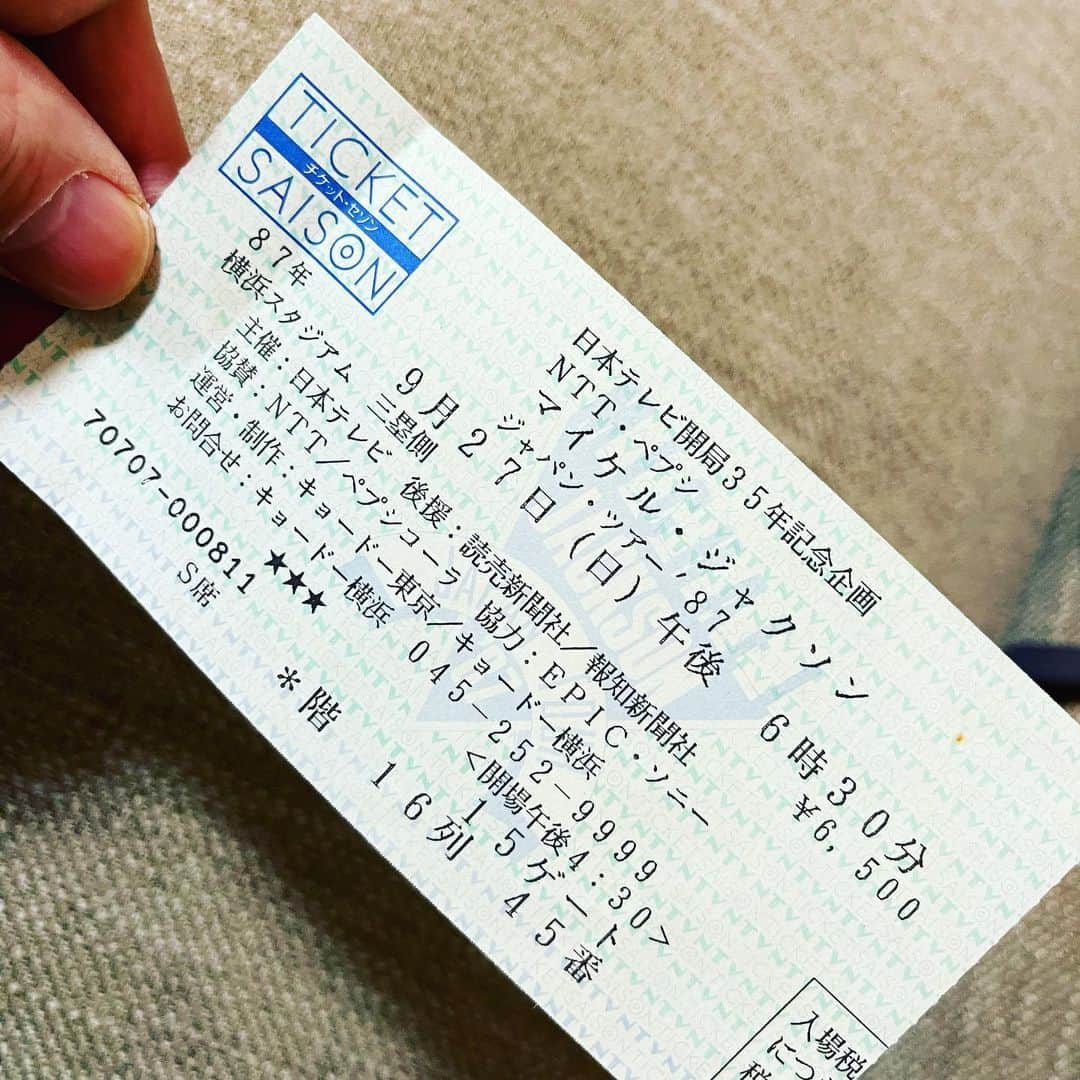 TICKET
チケット・セゾン
SAISON
日本テレビ開局35年記念企画
NTT・ペプシ
マイケル・ジャクソン
ジャパン・ツアー'87
87年 9月27日(日)午後 6時30分
横浜スタジアム 三塁側 ¥6,500
主催:日本テレビ 後援:読売新聞社/報知新聞社
協賛:NTT/ペプシコーラ 協力:EPIC・ソニー
運営・制作:キョードー東京/キョードー横浜
お問合せ:キョードー横浜 045-252-9999
<開場午後4:30>
★★★ 15ゲート
70707-000811
S席 *階 16列 45番
入場税
につ
税